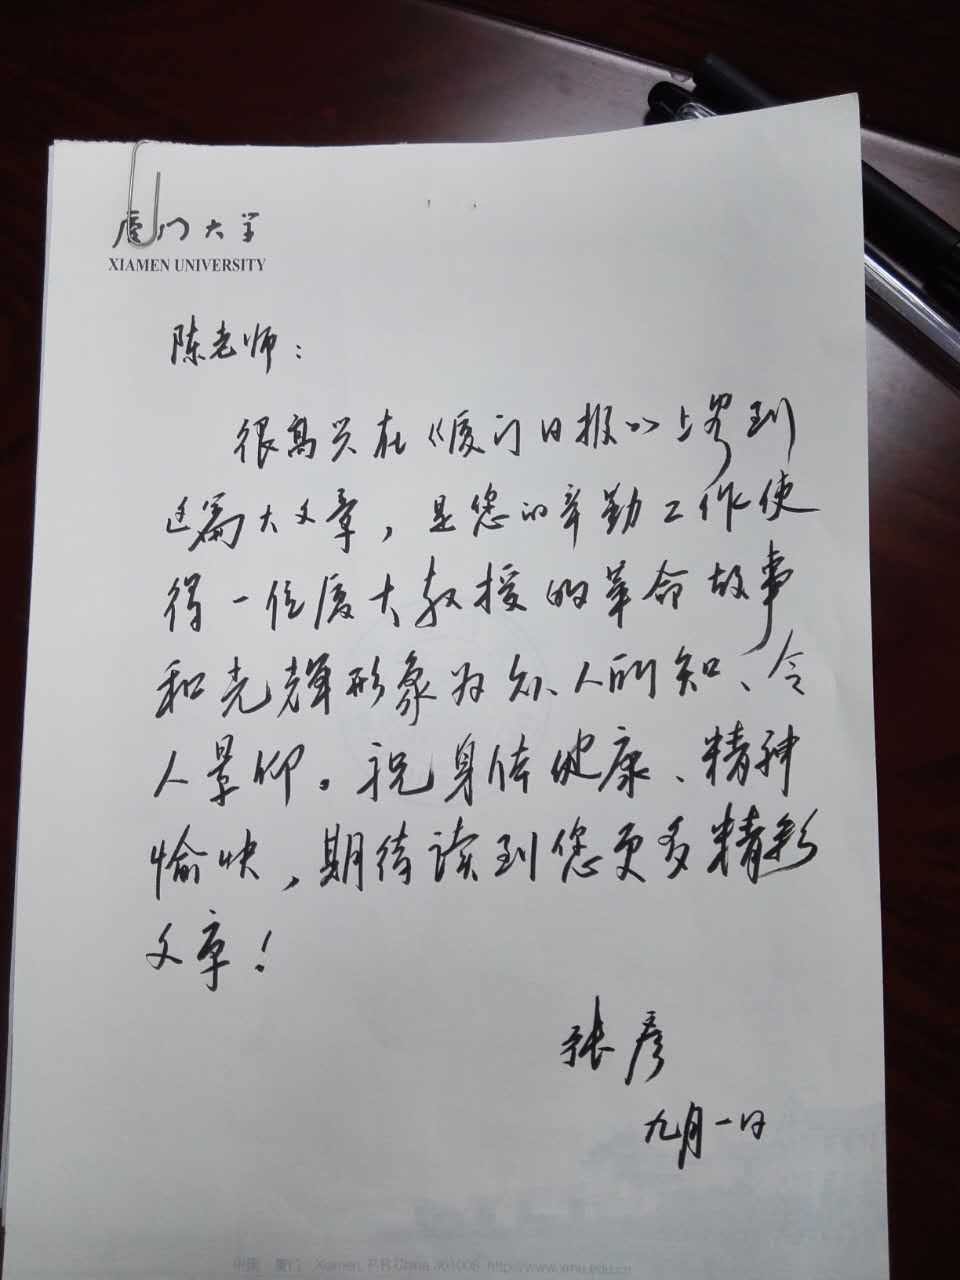 厦门大学
XIAMEN UNIVERSITY
陈老师：
很高兴在《厦门日报》上看到
这篇大文章，是您的辛勤工作使
得一位厦大教授的革命故事
和光辉形象为众人所知、令
人景仰。祝身体健康、精神
愉快，期待读到您更多精彩
文章！
张彦
九月一日
中国 厦门 Xiamen, P.R.China 361005 http://www.xmu.edu.cn